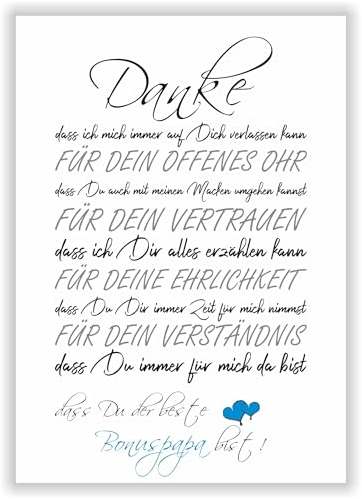 Danke
dass ich mich immer auf Dich verlassen kann
FÜR DEIN OFFENES OHR
dass Du auch mit meinen Macken umgehen kannst
FÜR DEIN VERTRAUEN
dass ich Dir alles erzählen kann
FÜR DEINE EHRLICHKEIT
dass Du Dir immer Zeit für mich nimmst
FÜR DEIN VERSTÄNDNIS
dass Du immer für mich da bist
dass Du der beste
Bonuspapa bist !